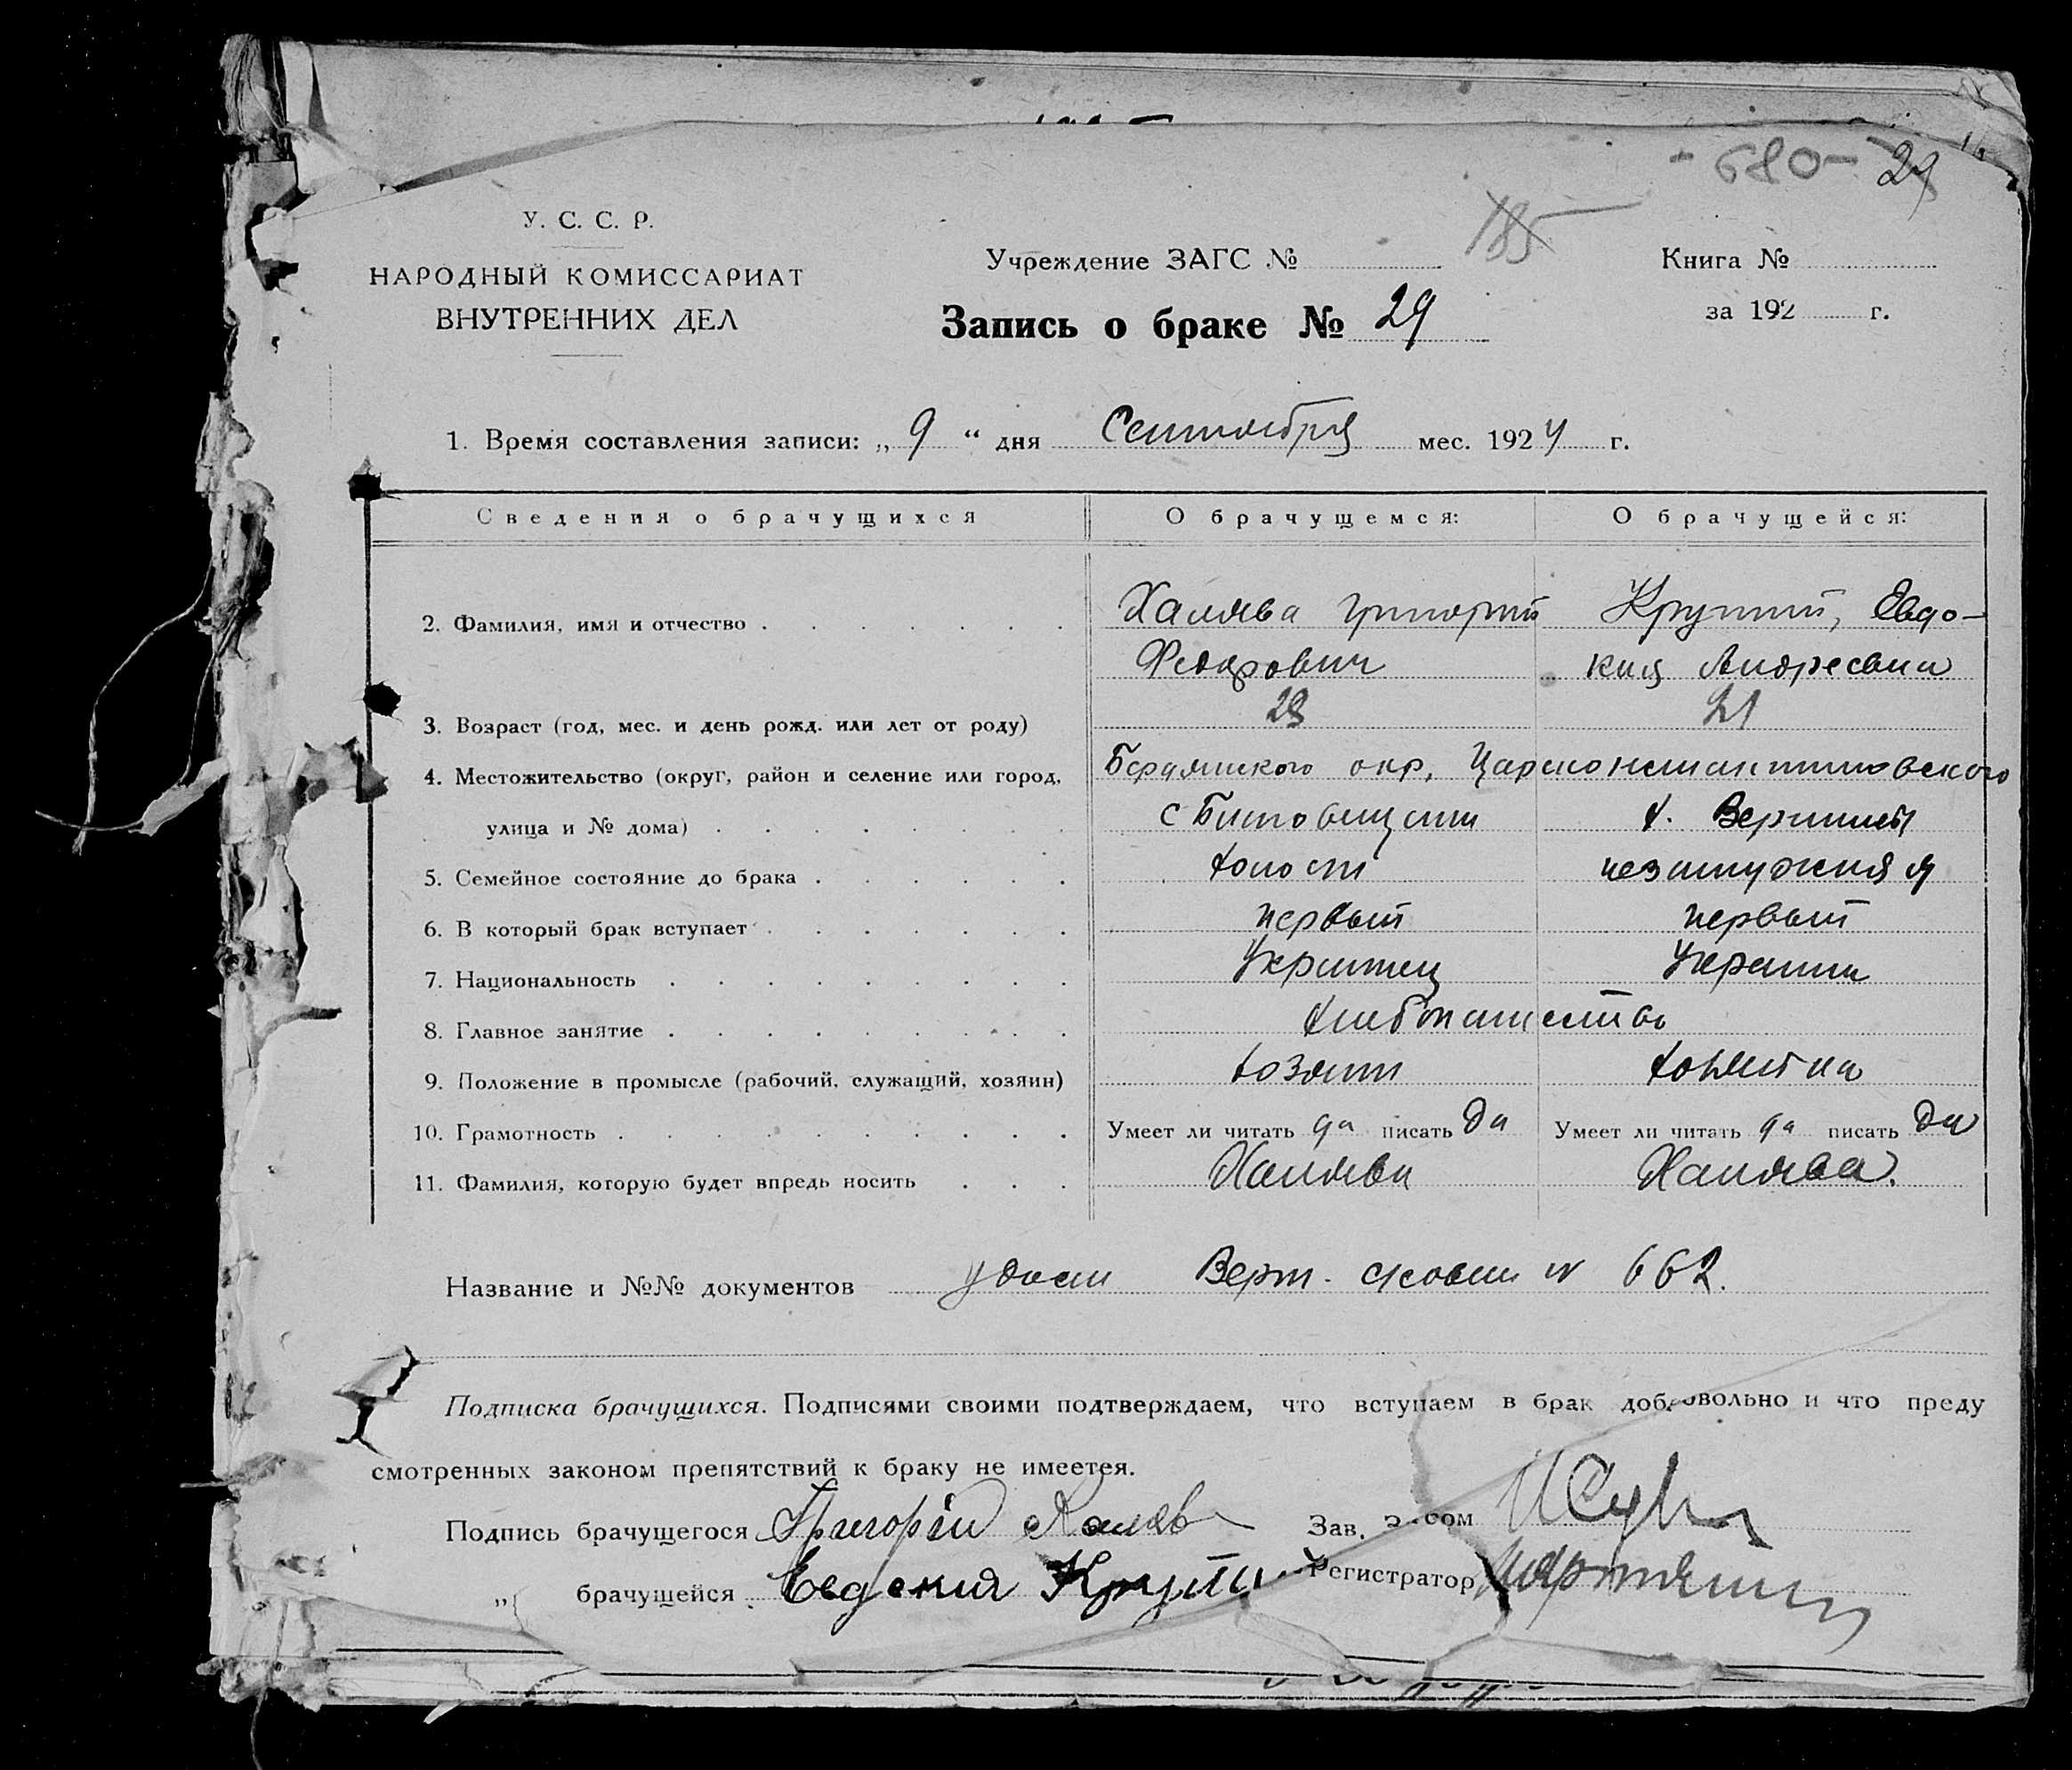 - 680 - 29
185
У. С. С. Р.
НАРОДНЫЙ КОМИССАРИАТ
ВНУТРЕННИХ ДЕЛ
Учреждение ЗАГС №
Книга №
за 192 г.
Запись о браке № 29
1. Время составления записи: „ 9 “ дня Сентября мес. 1924 г.
Сведения о брачущихся О брачущемся: О брачущейся:
2. Фамилия, имя и отчество . Халява Григорий Крутий, Евдо-
Федорович кия Андреевна
3. Возраст (год, мес. и день рожд. или лет от роду) 23 21
4. Местожительство (округ, район и селение или город, Бердянского окр. Царконстантиновского
улица и № дома) с х. Вершина
5. Семейное состояние до брака холост незамужняя
6. В который брак вступает первый первый
7. Национальность Украинец Украинка
8. Главное занятие хлебопашество
9. Положение в промысле (рабочий, служащий, хозяин) хозяин хозяйка
10. Грамотность Умеет ли читать да писать Да Умеет ли читать да писать Да
11. Фамилия, которую будет впредь носить Халява Халява.
Название и №№ документов удост № 662.
Подписка брачущихся. Подписями своими подтверждаем, что вступаем в брак добровольно и что преду
смотренных законом препятствий к браку не имеется.
Подпись брачущегося Григорій Халяв Зав. Загсом
„ брачущейся Евдокия Крутий Регистратор